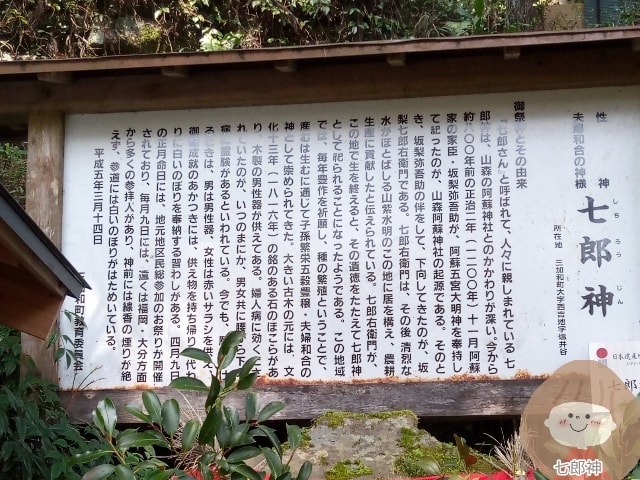 性神
夫婦和合の神様
七郎神
しちろうじん
所在地 三加和町大字西吉地字倍井谷
御祭神とその由来
「七郎さん」と呼ばれて、人々に親しまれている七
郎神は、山森の阿蘇神社とのかかわりが深い。今から
約八〇〇年前の正治二年(一二〇〇年)十一月阿蘇
家の家臣・坂梨弥吾助が、阿蘇五宮大明神を奉持し
て記ったのが、山森阿蘇神社の起源である。そのと
き、坂梨弥吾助の伴をして、下向してきたのが、坂
梨七郎右衛門である。七郎右衛門は、その後、清烈な
水がほとばしる山紫水明のこの地に居を構え、農耕
生産に貢献したと伝えられている。七郎右衛門が、
この地で生を終えると、その遺徳をたたえて七郎神
として祀られることになったようである。この地域
では、毎年豊作を祈願し、種の繁殖ということで、
産むは生むに通じて子孫繁栄五穀豊穣・夫婦和合の
神として崇められてきた。大きい古木の元には、文
化十三年(一八一六年)の銘のある石のほこらがあ
り、木製の男性器が供えてある。婦人病に効く
れていたのが、いつのまにか、男女共に腰から
病に霊験があるといわれている。今でも、
るときは、男は男性器、女性は赤いサラシを供え、
御願成就のあかつきには、供え物を持ち帰り、代
りに白いのぼりを奉納する習わしがある。四月九日
の正月命日には、地元地区民総参加のお祭りが開催
されており、毎月九日には、遠くは福岡・大分方面
から多くの参拝人があり、神前には線香の煙りが絶
えず、参道には白いのぼりがはためいている。
平成五年三月十四日
加和町教育委員会
日本
七郎
七郎神